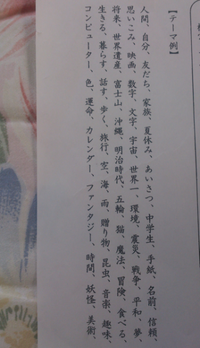 【テーマ例】
人間、自分、友だち、家族、夏休み、あいさつ、中学生、手紙、名前、信頼、
思いこみ、映画、数字、文字、宇宙、世界一、環境、震災、戦争、平和、夢、
将来、世界遺産、富士山、沖縄、明治時代、五輪、猫、魔法、冒険、食べる、
生きる、暮らす、話す、歩く、旅行、空、海、雨、贈り物、昆虫、音楽、趣味、
コンピューター、色、運命、カレンダー、ファンタジー、時間、妖怪、美術、